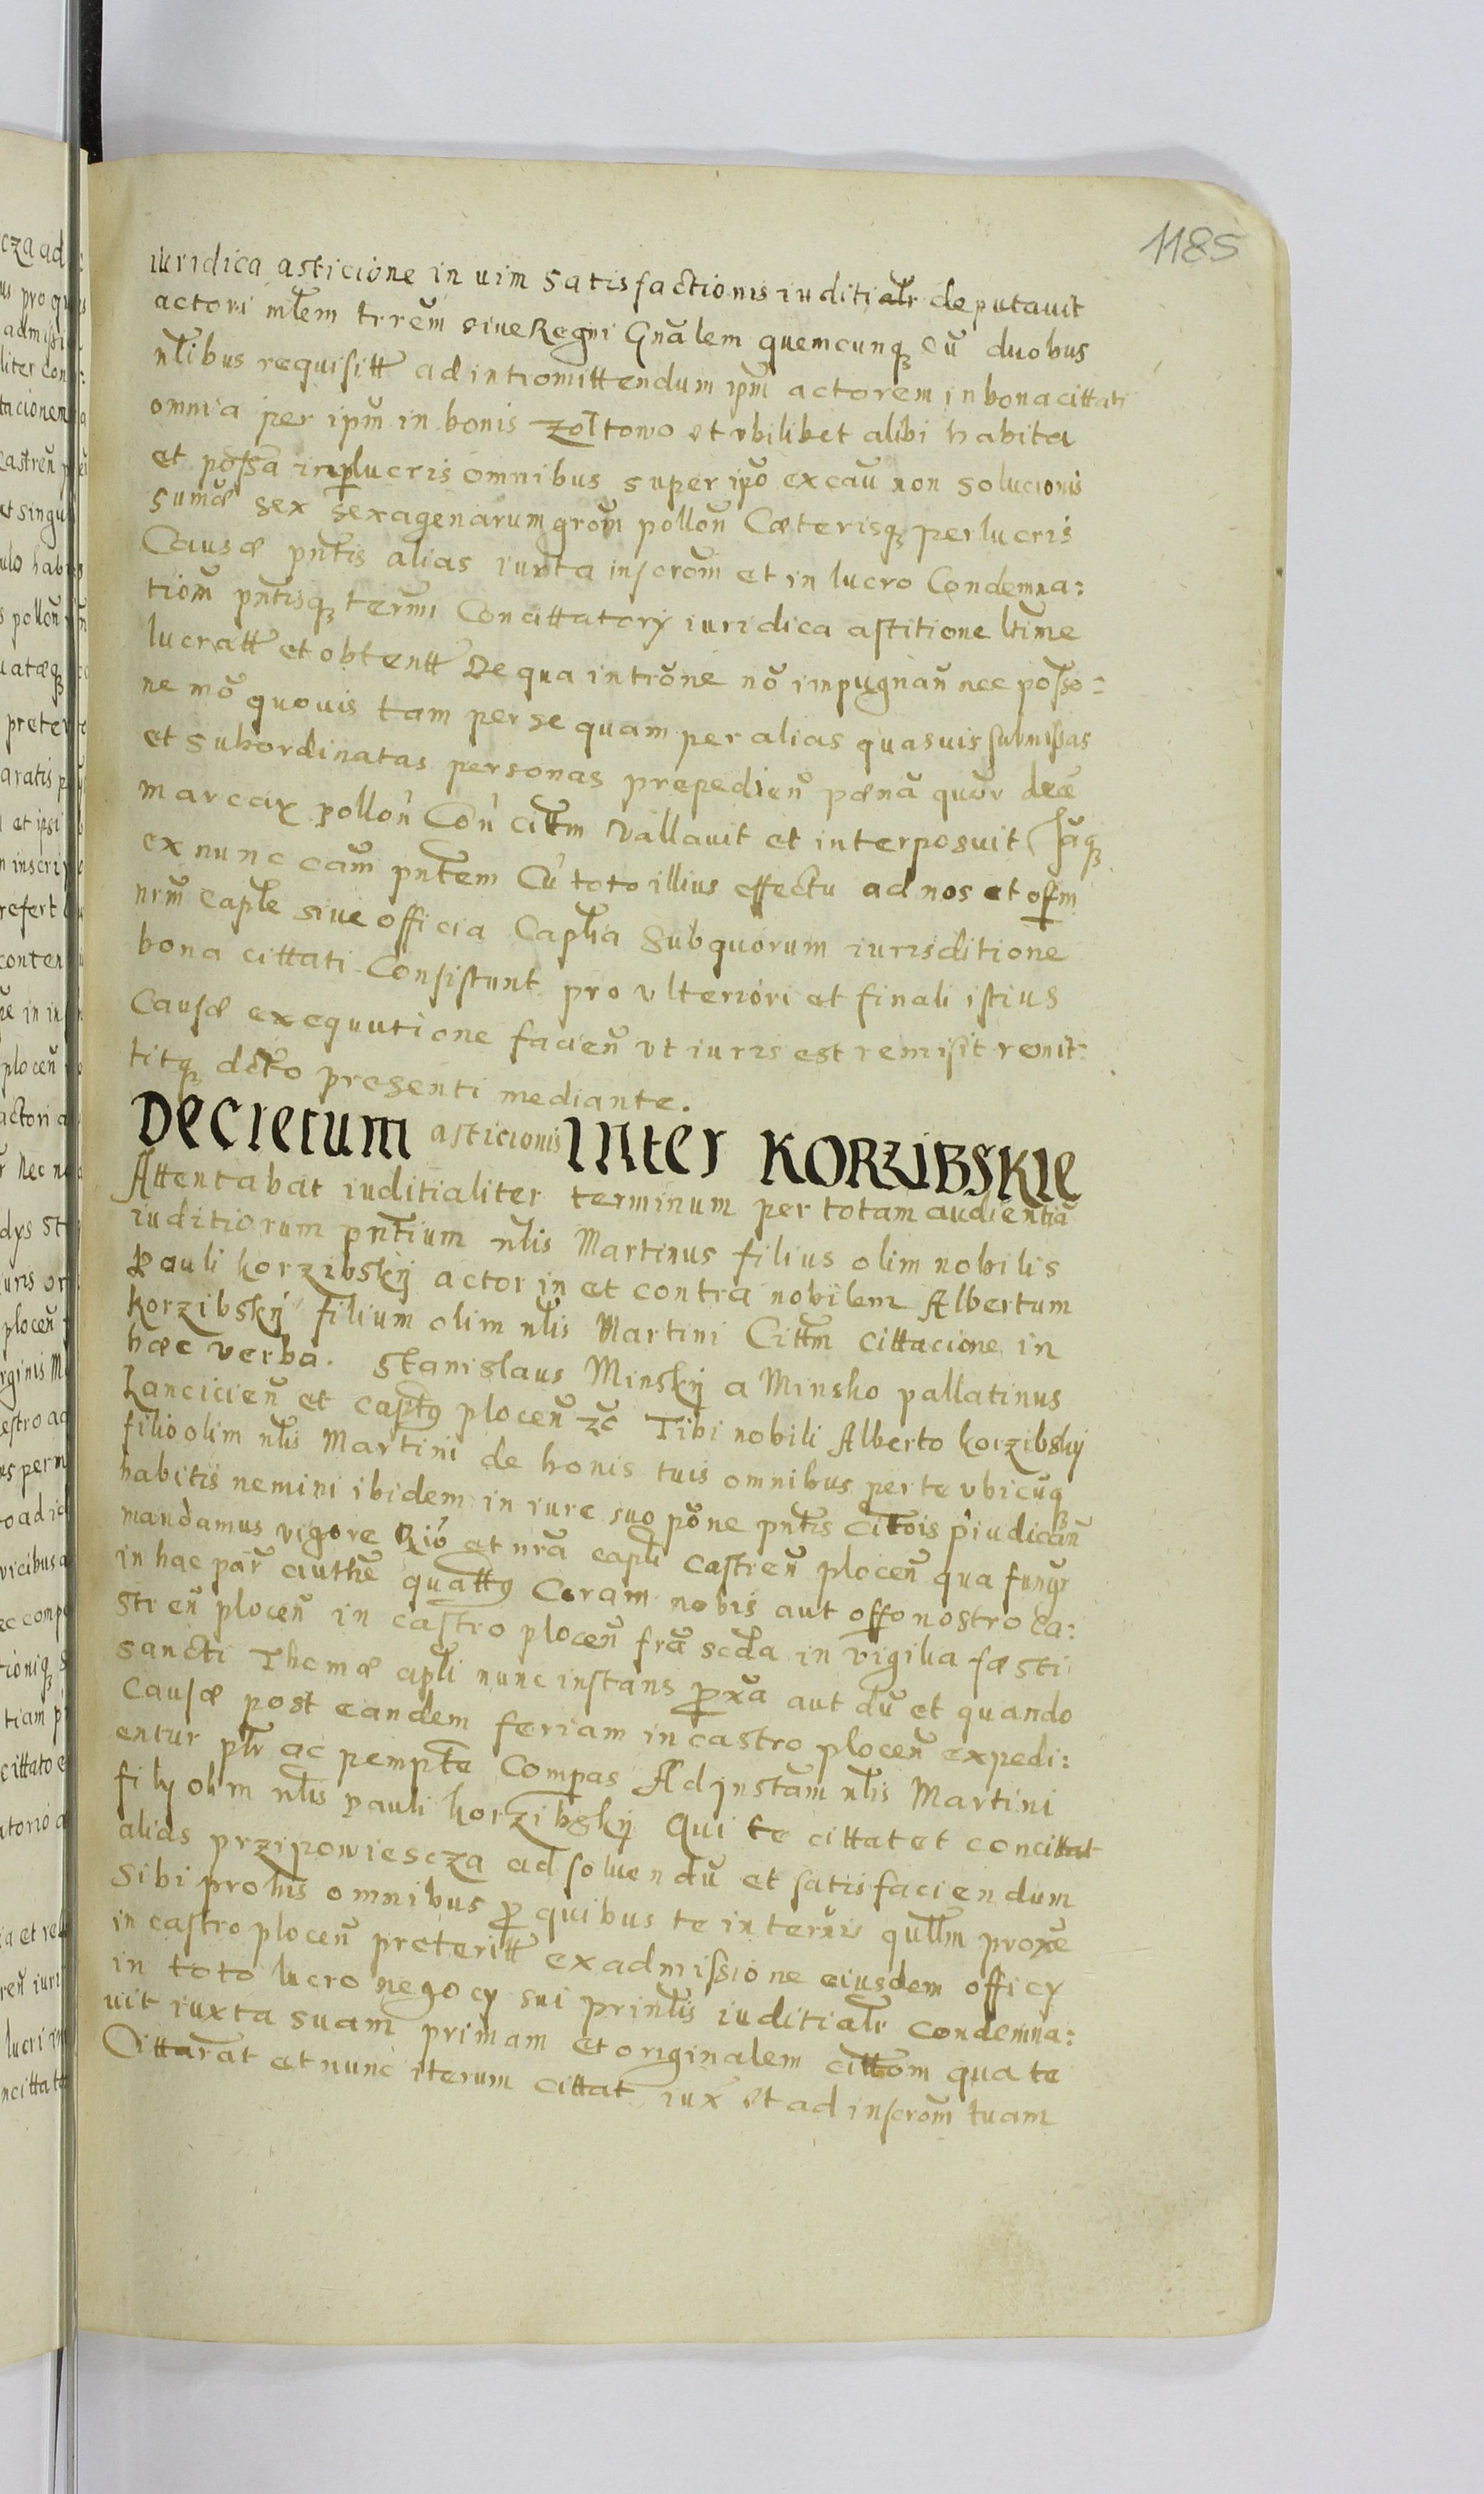 1185
iuridica asticione in uim satisfactionis iuditialr deputauit
actori mlem trrem siue Regni Gnalem quemcunq cu duobus
nlibus requisitt ad intromittendum ipm actorem in bona cittati
omnia per ipm in bonis Zoltowo et vbilibet alibi habita
et possa in plucris omnibus super ipo ex cau non solucionis
sumæ sex sexagenarum grom pollon Cæterisq perlucris
Causæ pntis alias iuxta inscrom et in lucro Condemna:
tiom pntisq termi Concittatory iuridica astitione ltime
lucratt et obtentt De qua introne no impugnan nec posso:
ne mo quouis tam per se quam per alias quasuis submissas
et subordinatas personas prepedien pæna quor dece
marcar pollon Con cittm vallauit et interposuit
ex nunc cam pntem Cu toto illius effectu ad nos et offm
nrm caple siue officia Caplia Sub quorum iurisditione
bona cittati Consistunt pro vlteriori et finali istius
Causæ exequutione facien vt iuris est remisit remit:
titq dcto presenti mediante.
Decretum asticionis Inter KORZIBSKIE
Attentabat iuditialiter terminum per totam audientia
iuditiorum pntium nlis Martinus filius olim nobilis
Pauli Korzibskij actor in et contra nobilem Albertum
Korzibskij filium olim nlis Martini Cittm cittacione in
hæc verba. Stanislaus Minskij a Minsko pallatinus
Lancicien et captg plocen zc Tibi nobili Alberto Korzibskij
filio olim nlis Martini de bonis tuis omnibus per te vbicuq
habitis nemini ibidem in iure suo pone pntis citois piudican
mandamus vigore Rio et nra capli castren plocen qua fungr
in hac par authe quattg Coram nobis aut offo nostro ca:
stren plocen in castro plocen fra scda in vigilia fæsti
sancti Thomæ apli nunc instans pxa aut du et quando
Causæ post eandem feriam in castro plocen expedi:
entur plr ac pempte Compas Ad instam nlis Martini
filij olim nlis Pauli Korzibskij Qui te cittat et concittat
alias przipowiescza ad soluendu et satisfaciendum
Sibi pro his omnibus p quibus te in termis qullm proxe
in castro plocen preteritt ex admissione eiusdem officy
in toto lucro negocy sui printlis iuditialr condemna:
uit iuxta suam primam et originalem cittom qua te
Cittarat et nunc iterum cittat iux et ad inscrom tuam